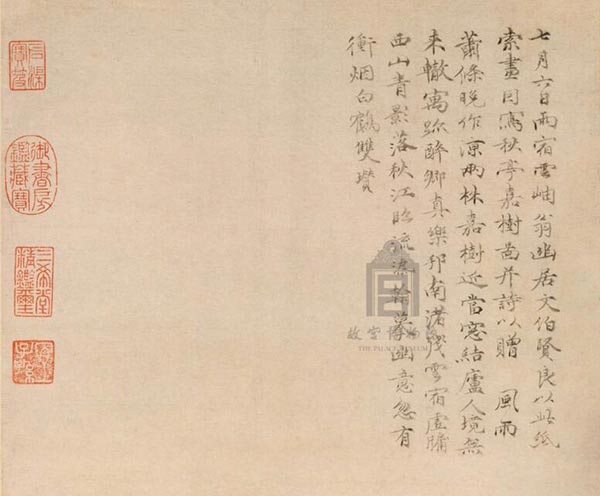 七月六日雨宿雲岫翁幽居文伯賢良以此紙
索畫因寫秋亭嘉樹圖并詩以贈 風雨
蕭條晚作涼兩株嘉樹近當窓結廬人境無
来轍寓跡醉鄉真樂邦南渚殘雲宿虛牖
西山青影落秋江臨流染翰摹幽意忽有
衝烟白鶴雙瓚
石渠寶笈
御書房鑑藏寶
三希堂精鑑璽
宜子孫
故宫博物院
THE PALACE MUSEUM